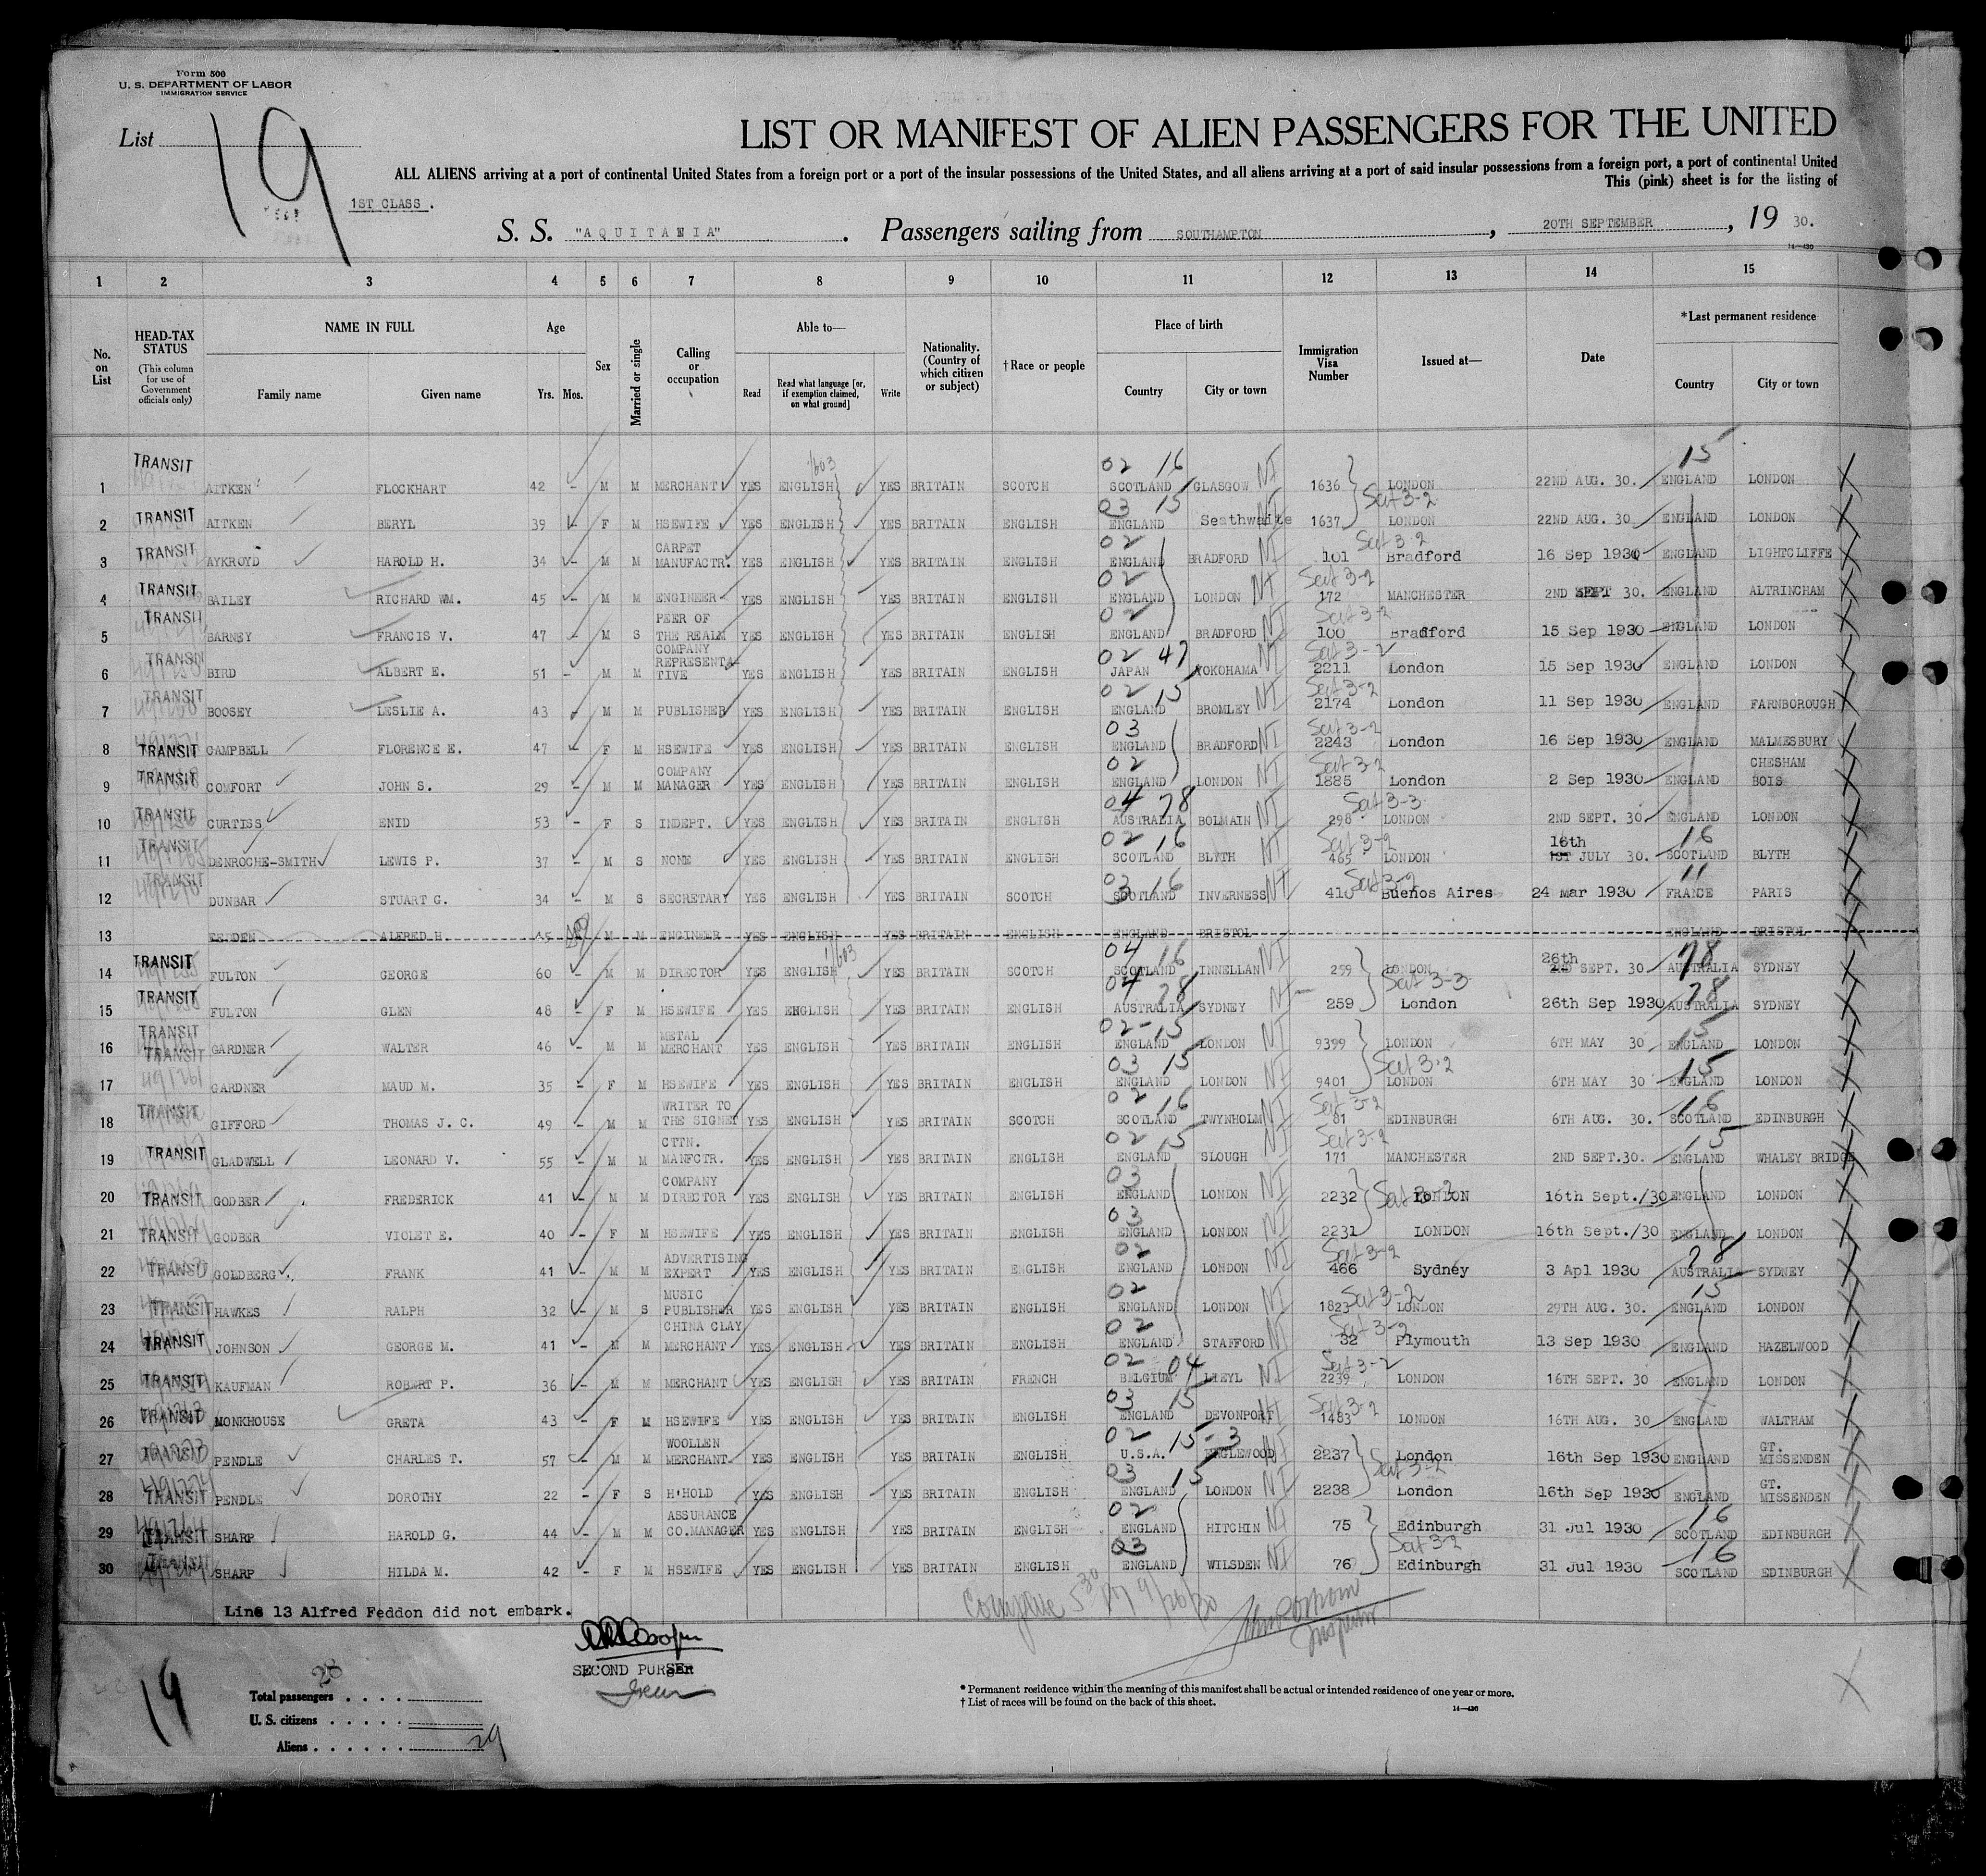 Form 500
U. S. DEPARTMENT OF LABOR
IMMIGRATION SERVICE
List 19
LIST OR MANIFEST OF ALIEN PASSENGERS FOR THE UNITED
ALL ALIENS arriving at a port of continental United States from a foreign port or a port of the insular possessions of the United States, and all aliens arriving at a port of said insular possessions from a foreign port, a port of continental United
This (pink) sheet is for the listing of
1ST CLASS.
S. S. "AQUITANIA". Passengers sailing from SOUTHAMPTON, 20TH SEPTEMBER, 19 30.
14—430
1 2 3 4 5 6 7 8 9 10 11 12 13 14 15
No. on List
HEAD-TAX STATUS
(This column for use of Government officials only)
NAME IN FULL
Family name Given name
Age
Yrs. Mos.
Sex
Married or single
Calling or occupation
Able to—
Read Read what language [or, if exemption claimed, on what ground] Write
Nationality. (Country of which citizen or subject)
†Race or people
Place of birth
Country City or town
Immigration Visa Number
Issued at—
Date
*Last permanent residence
Country City or town
1 TRANSIT AITKEN FLOCKHART 42 - M M MERCHANT YES ENGLISH YES BRITAIN SCOTCH 02 16 SCOTLAND GLASGOW NI 1636 LONDON 22ND AUG. 30. 15 ENGLAND LONDON
2 TRANSIT AITKEN BERYL 39 - F M HSEWIFE YES ENGLISH YES BRITAIN ENGLISH 03 15 ENGLAND Seathwaite NI 1637 Sect 3-2 LONDON 22ND AUG. 30. ENGLAND LONDON
3 TRANSIT AYKROYD HAROLD H. 34 - M M CARPET MANUFACTR. YES ENGLISH YES BRITAIN ENGLISH 02 ENGLAND BRADFORD NI 101 Sect 3-2 Bradford 16 Sep 1930 ENGLAND LIGHTCLIFFE
4 TRANSIT BAILEY RICHARD WM. 45 - M M ENGINEER YES ENGLISH YES BRITAIN ENGLISH 02 ENGLAND LONDON NI Sect 3-2 172 MANCHESTER 2ND SEPT 30. ENGLAND ALTRINCHAM
5 TRANSIT BARNEY FRANCIS V. 47 - M S PEER OF THE REALM YES ENGLISH YES BRITAIN ENGLISH 02 ENGLAND BRADFORD NI Sect 3-2 100 Bradford 15 Sep 1930 ENGLAND LONDON
6 TRANSIT BIRD ALBERT E. 51 - M M COMPANY REPRESENTATIVE YES ENGLISH YES BRITAIN ENGLISH 02 47 JAPAN YOKOHAMA NI Sect 3-2 2211 London 15 Sep 1930 ENGLAND LONDON
7 TRANSIT BOOSEY LESLIE A. 43 - M M PUBLISHER YES ENGLISH YES BRITAIN ENGLISH 02 15 ENGLAND BROMLEY NI Sect 3-2 2174 London 11 Sep 1930 ENGLAND FARNBOROUGH
8 TRANSIT CAMPBELL FLORENCE E. 47 - F M HSEWIFE YES ENGLISH YES BRITAIN ENGLISH 03 ENGLAND BRADFORD NI Sect 3-2 2243 London 16 Sep 1930 ENGLAND MALMESBURY
9 TRANSIT COMFORT JOHN S. 29 - M M COMPANY MANAGER YES ENGLISH YES BRITAIN ENGLISH 02 ENGLAND LONDON NI Sect 3-2 1885 London 2 Sep 1930 ENGLAND CHESHAM BOIS
10 TRANSIT CURTISS ENID 53 - F S INDEPT. YES ENGLISH YES BRITAIN ENGLISH 04 78 AUSTRALIA BOLMAIN NI Sect 3-3 298 LONDON 2ND SEPT. 30. ENGLAND LONDON
11 TRANSIT DENROCHE-SMITH LEWIS P. 37 - M S NONE YES ENGLISH YES BRITAIN ENGLISH 02 16 SCOTLAND BLYTH NI Sect 3-2 465 LONDON 16th 1ST JULY 30. 16 SCOTLAND BLYTH
12 TRANSIT DUNBAR STUART G. 34 - M S SECRETARY YES ENGLISH YES BRITAIN SCOTCH 03 16 SCOTLAND INVERNESS NI 410 Sect 3-2 Buenos Aires 24 Mar 1930 11 FRANCE PARIS
13 FEDDEN ALFRED H. 45 M M ENGINEER YES ENGLISH YES BRITAIN ENGLISH ENGLAND BRISTOL ENGLAND BRISTOL
14 TRANSIT FULTON GEORGE 60 - M M DIRECTOR YES ENGLISH YES BRITAIN SCOTCH 04 16 SCOTLAND INNELLAN NI 259 LONDON 26th 2ND SEPT. 30 78 AUSTRALIA SYDNEY
15 TRANSIT FULTON GLEN 48 - F M HSEWIFE YES ENGLISH YES BRITAIN ENGLISH 04 78 AUSTRALIA SYDNEY NI 259 Sect 3-3 London 26th Sep 1930 78 AUSTRALIA SYDNEY
16 TRANSIT GARDNER WALTER 46 - M M METAL MERCHANT YES ENGLISH YES BRITAIN ENGLISH 02-15 ENGLAND LONDON NI 9399 LONDON 6TH MAY 30. 15 ENGLAND LONDON
17 TRANSIT GARDNER MAUD M. 35 - F M HSEWIFE YES ENGLISH YES BRITAIN ENGLISH 03 15 ENGLAND LONDON NI 9401 Sect 3-2 LONDON 6TH MAY 30 15 ENGLAND LONDON
18 TRANSIT GIFFORD THOMAS J. C. 49 - M M WRITER TO THE SIGNET YES ENGLISH YES BRITAIN SCOTCH 02 16 SCOTLAND TWYNHOLM NI Sect 3-2 81 EDINBURGH 6TH AUG. 30. 16 SCOTLAND EDINBURGH
19 TRANSIT GLADWELL LEONARD V. 55 - M M CTTN. MANFCTR. YES ENGLISH YES BRITAIN ENGLISH 02 15 ENGLAND SLOUGH NI Sect 3-2 171 MANCHESTER 2ND SEPT.30. 15 ENGLAND WHALEY BRIDGE
20 TRANSIT GODBER FREDERICK 41 - M M COMPANY DIRECTOR YES ENGLISH YES BRITAIN ENGLISH 03 ENGLAND LONDON NI 2232 Sect 3-2 LONDON 16th Sept./30 ENGLAND LONDON
21 TRANSIT GODBER VIOLET E. 40 - F M HSEWIFE YES ENGLISH YES BRITAIN ENGLISH 03 ENGLAND LONDON NI 2231 LONDON 16th Sept./30 ENGLAND LONDON
22 TRANSIT GOLDBERG FRANK 41 - M M ADVERTISING EXPERT YES ENGLISH YES BRITAIN ENGLISH 02 ENGLAND LONDON NI Sect 3-2 466 Sydney 3 Apl 1930 78 AUSTRALIA SYDNEY
23 TRANSIT HAWKES RALPH 32 - M S MUSIC PUBLISHER YES ENGLISH YES BRITAIN ENGLISH 02 ENGLAND LONDON NI 1823 Sect 3-2 LONDON 29TH AUG. 30. 15 ENGLAND LONDON
24 TRANSIT JOHNSON GEORGE M. 41 - M M CHINA CLAY MERCHANT YES ENGLISH YES BRITAIN ENGLISH 02 ENGLAND STAFFORD NI Sect 3-2 32 Plymouth 13 Sep 1930 ENGLAND HAZELWOOD
25 TRANSIT KAUFMAN ROBERT P. 36 - M M MERCHANT YES ENGLISH YES BRITAIN FRENCH 02 04 BELGIUM NI Sect 3-2 2239 LONDON 16TH SEPT. 30 ENGLAND LONDON
26 TRANSIT MONKHOUSE GRETA 43 - F M HSEWIFE YES ENGLISH YES BRITAIN ENGLISH 03 15 ENGLAND DEVONPORT NI Sect 3-2 1483 LONDON 16TH AUG. 30 ENGLAND WALTHAM
27 TRANSIT PENDLE CHARLES T. 57 - M M WOOLLEN MERCHANT. YES ENGLISH YES BRITAIN ENGLISH 02 15-3 U.S.A. ENGLEWOOD NI 2237 London 16th Sep 1930 ENGLAND GT. MISSENDEN
28 TRANSIT PENDLE DOROTHY 22 - F S H'HOLD YES ENGLISH YES BRITAIN ENGLISH 03 15 ENGLAND LONDON NI 2238 Sect 3-2 London 16th Sep 1930 ENGLAND GT. MISSENDEN
29 TRANSIT SHARP HAROLD G. 44 - M M ASSURANCE CO.MANAGER YES ENGLISH YES BRITAIN ENGLISH 02 ENGLAND HITCHIN NI 75 Edinburgh 31 Jul 1930 16 SCOTLAND EDINBURGH
30 TRANSIT SHARP HILDA M. 42 - F M HSEWIFE YES ENGLISH YES BRITAIN ENGLISH 03 ENGLAND WILSDEN NI 76 Sect 3-2 Edinburgh 31 Jul 1930 16 SCOTLAND EDINBURGH
Line 13 Alfred Feddon did not embark.
SECOND PURSER
19
Total passengers . . . . 28
U. S. citizens . . . . .
Aliens . . . . . . 29
* Permanent residence within the meaning of this manifest shall be actual or intended residence of one year or more.
† List of races will be found on the back of this sheet.
14—430